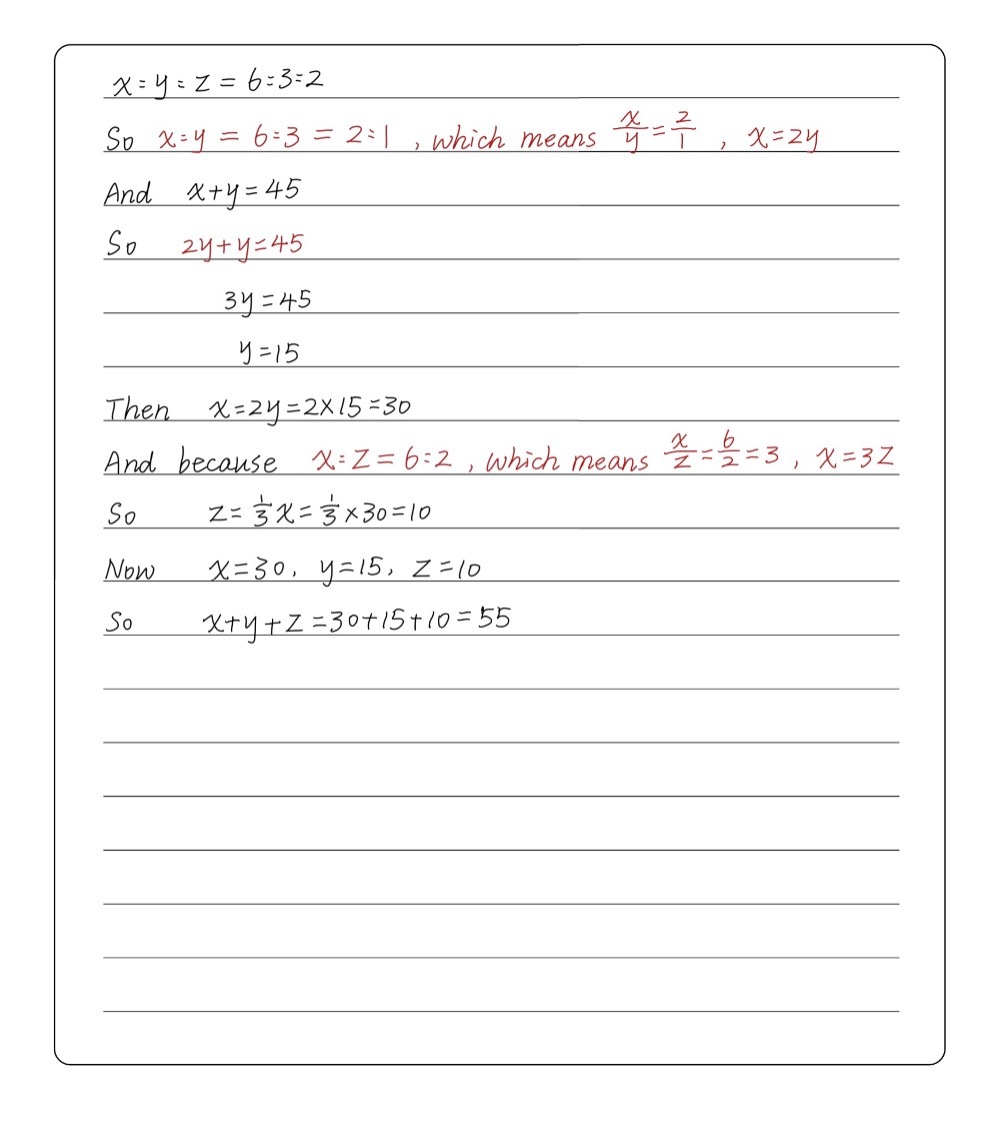 x:y:z = 6:3:2
So x:y = 6:3 = 2:1 , which means x/y = 2/1 , x=2y
And x+y=45
So 2y+y=45
3y=45
y=15
Then x=2y=2×15=30
And because x:z=6:2 , which means x/z=6/2=3 , x=3z
So z=1/3x=1/3×30=10
Now x=30, y=15, z=10
So x+y+z=30+15+10=55